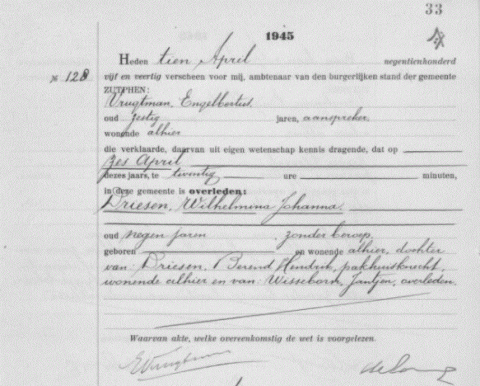 33
1945
Heden tien April negentienhonderd
№ 128
vijf en veertig verscheen voor mij, ambtenaar van den burgerlijken stand der gemeente
ZUTPHEN:
Vrugtman, Engelbertus
oud zestig jaren, aanspreker
wonende alhier
die verklaarde, daarvan uit eigen wetenschap kennis dragende, dat op
zes April
dezes jaars, te twintig ure minuten,
in deze gemeente is overleden:
Driesen, Wilhelmina Johanna.
oud negen jaren, zonder beroep,
geboren en wonende alhier, dochter
van Driesen, Berend Hendrik, pakhuisknecht,
wonende alhier en van Wisseborn, Jantjen, overleden.
Waarvan akte, welke overeenkomstig de wet is voorgelezen.
EVrugtman